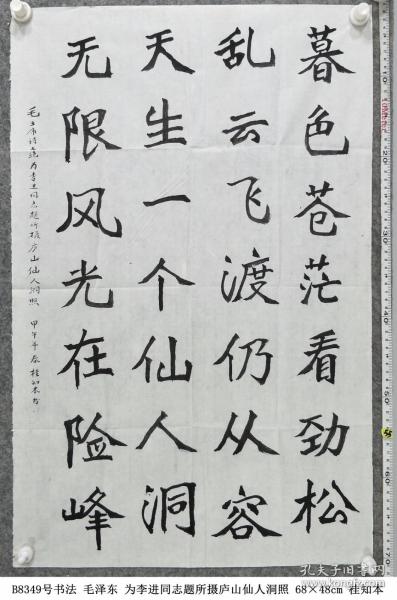 暮色苍茫看劲松
乱云飞渡仍从容
天生一个仙人洞
无限风光在险峰
毛主席诗词为李进同志题所摄庐山仙人洞照 甲午年春 桂知本书
B8349号书法 毛泽东 为李进同志题所摄庐山仙人洞照 68×48cm 桂知本
孔夫子旧书网